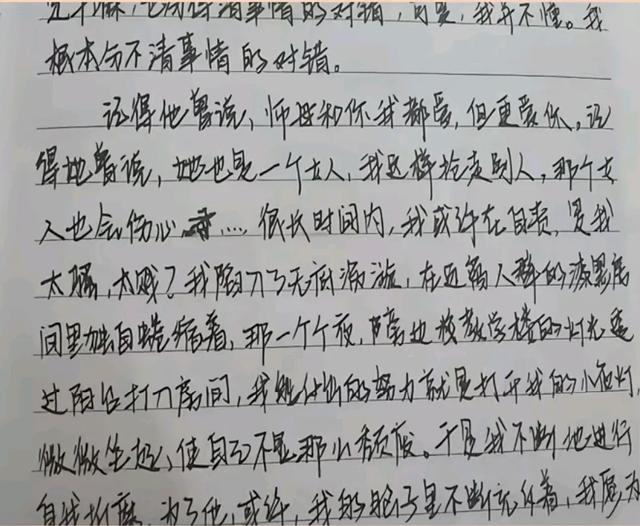 分得清事情的对错，可是，我并不懂。我
根本分不清事情的对错。
记得他曾说，师母和你我都爱，但更爱你。记
得他曾说，她也是一个女人，我这样抢走别人，那个女
人也会伤心……很长时间内，我或许在自责，是我
太骚，太贱？我陷入了无底漩涡，在远离人群的漆黑房
间里独自蜷缩着，那一个个夜，隔着教学楼的灯光透
过阳台打入房间，我能付出的努力就是打开我的小夜灯，
微微坐起，使自己不是那么颓废。于是我不断地进行
自我折磨，为了他，或许，我的脑子里不断充斥着，我愿为